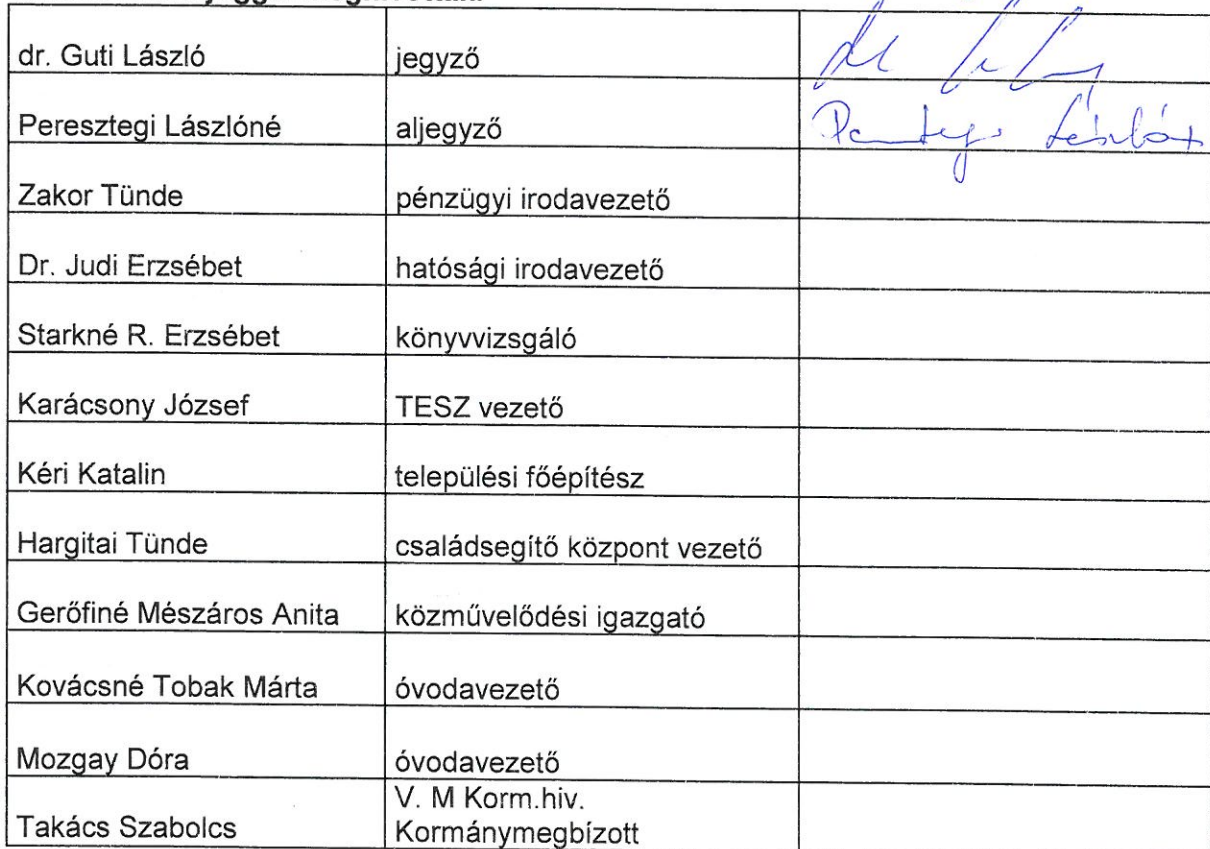 dr. Guti László jegyző
Peresztegi Lászlóné aljegyző
Zakor Tünde pénzügyi irodavezető
Dr. Judi Erzsébet hatósági irodavezető
Starkné R. Erzsébet könyvvizsgáló
Karácsony József TESZ vezető
Kéri Katalin települési főépítész
Hargitai Tünde családsegítő központ vezető
Gerőfiné Mészáros Anita közművelődési igazgató
Kovácsné Tobak Márta óvodavezető
Mozgay Dóra óvodavezető
Takács Szabolcs V. M Korm.hiv.
Kormánymegbízott